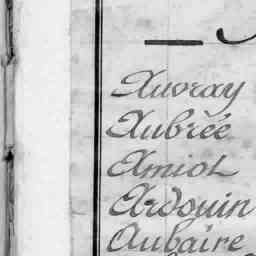 Auvray
Aubrée
Amiot
Ardouin
Aubaire